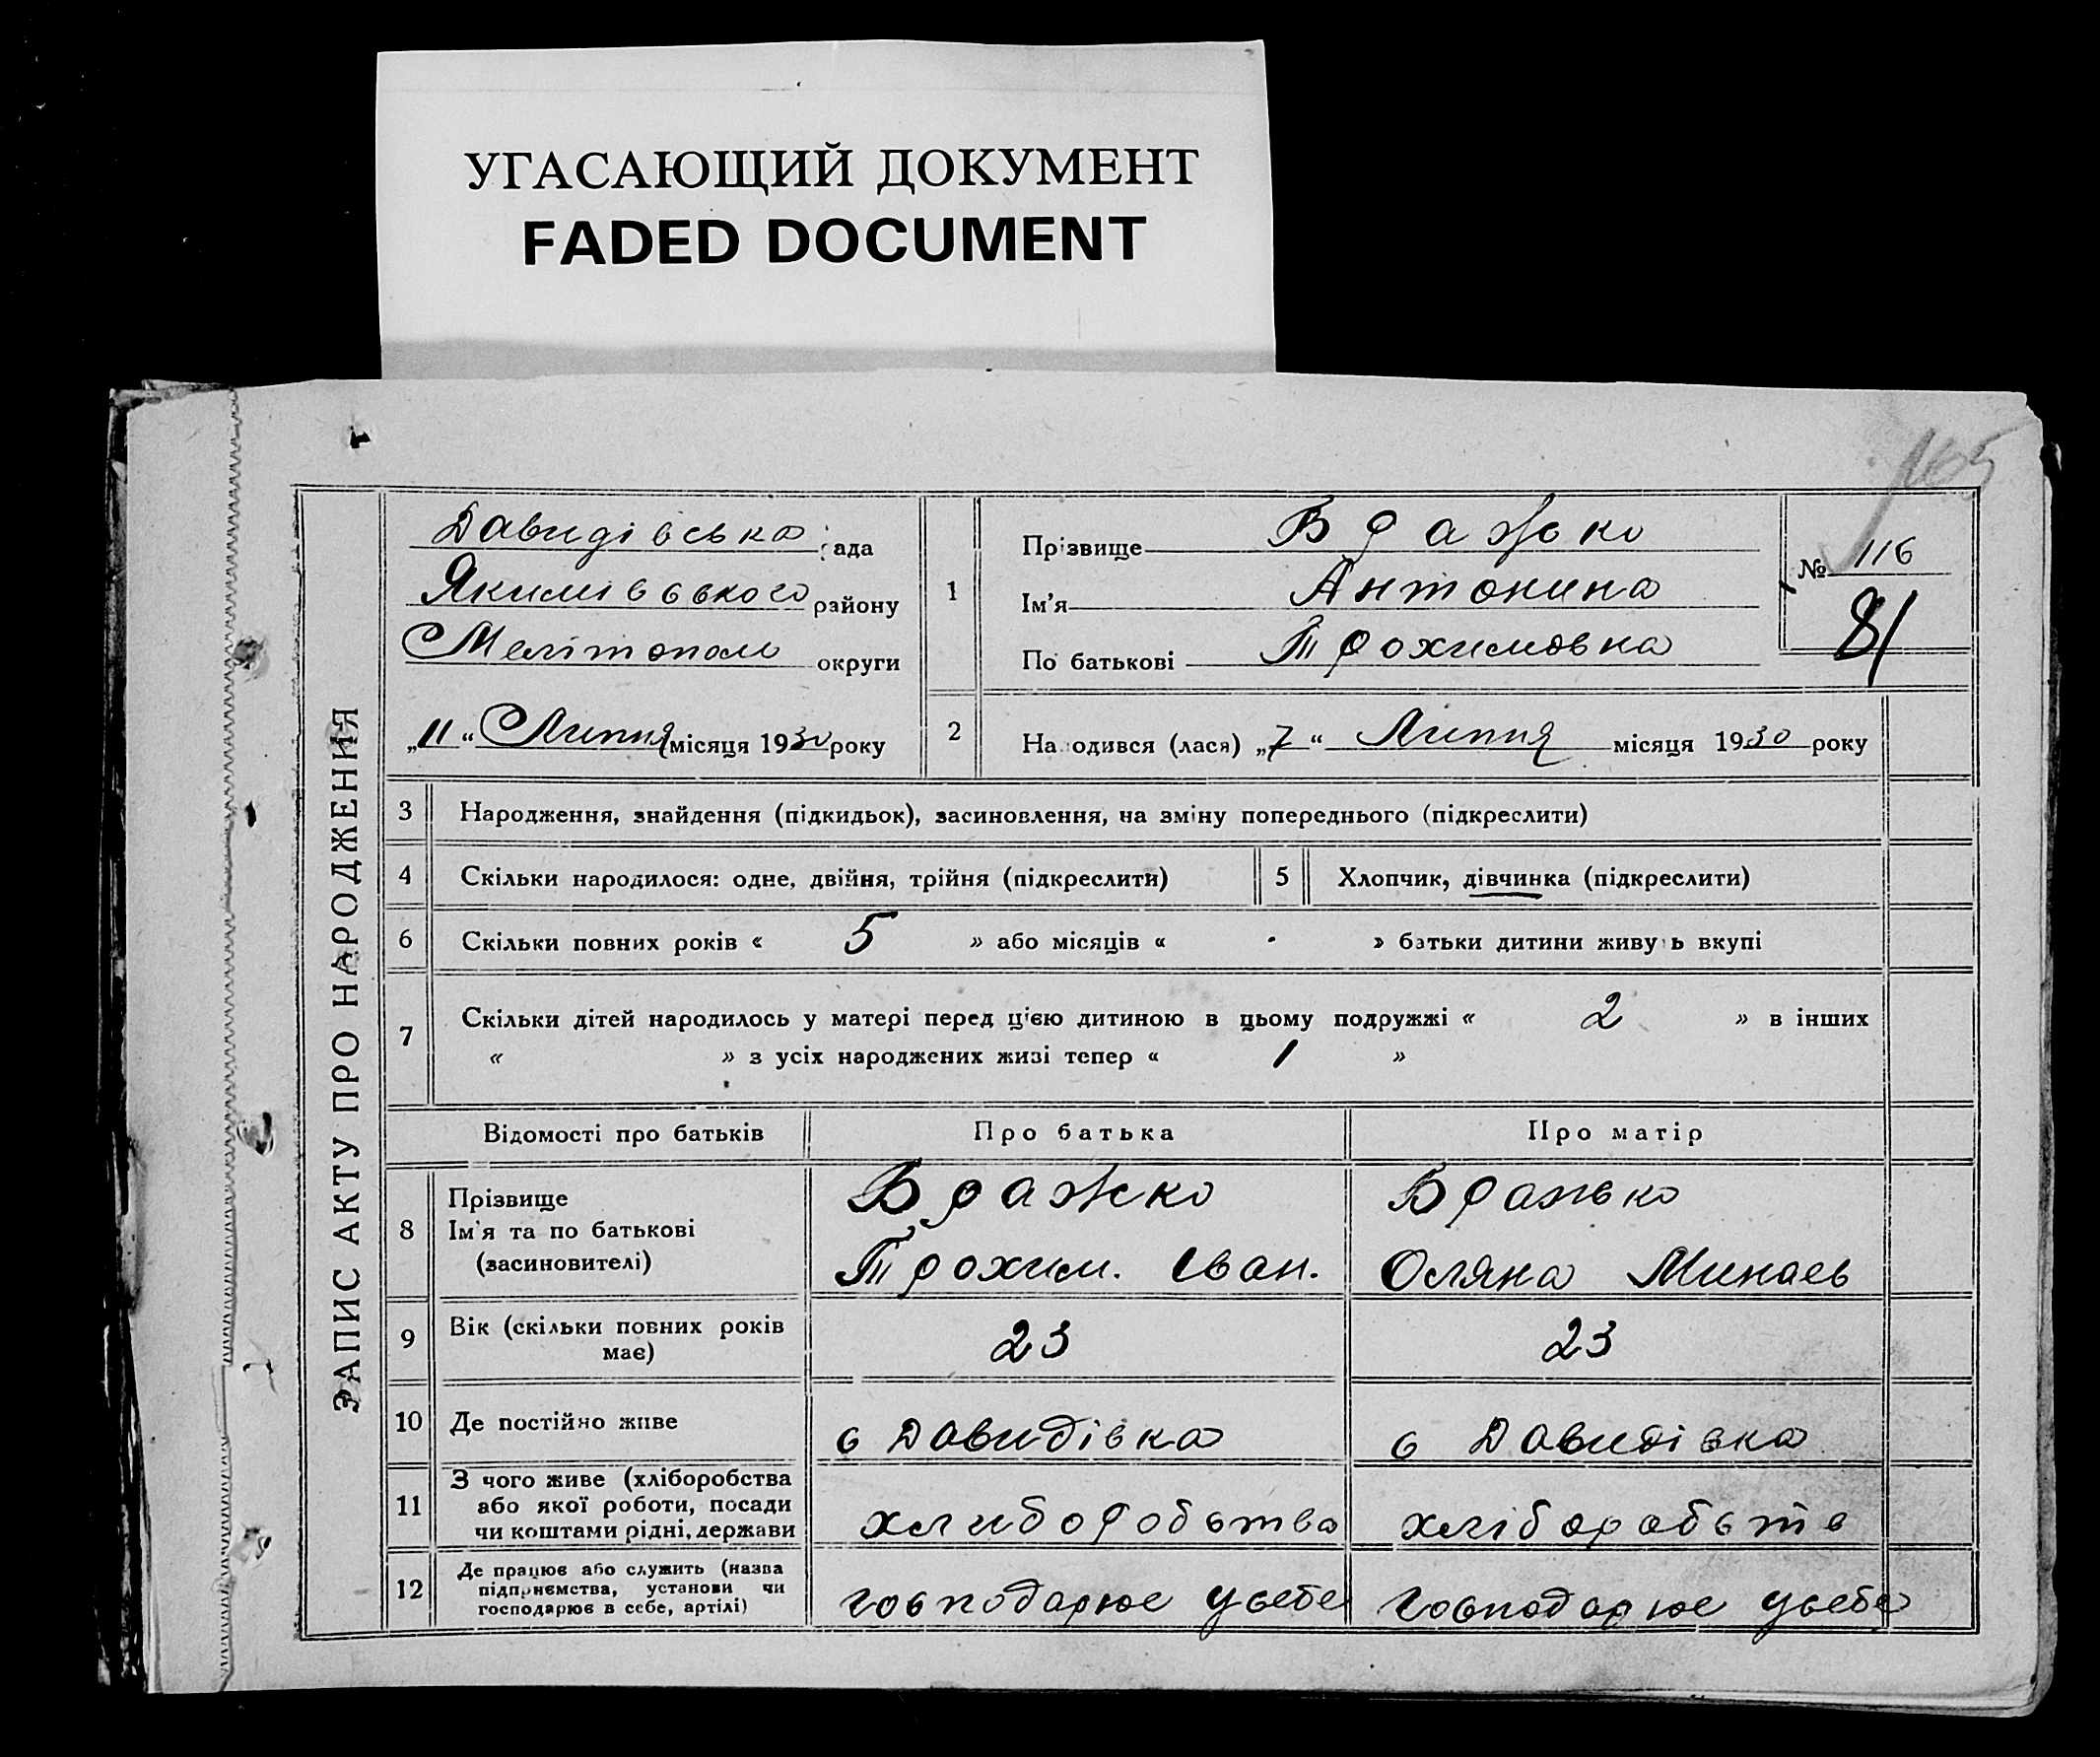 УГАСАЮЩИЙ ДОКУМЕНТ
FADED DOCUMENT
165
ЗАПИС АКТУ ПРО НАРОДЖЕННЯ
Давидівська рада
Якимівського району
Мелітополь округи
„11“ Липня місяця 1930 року
1
Прізвище Вражко
Ім'я Антонина
По батькові Трохимовна
№ 116
81
2 Народився (лася) „7“ Липня місяця 1930 року
3 Народження, знайдення (підкидьок), засиновлення, на зміну попереднього (підкреслити)
4 Скільки народилося: одне, двійня, трійня (підкреслити) 5 Хлопчик, дівчинка (підкреслити)
6 Скільки повних років « 5 » або місяців « » батьки дитини живуть вкупі
7 Скільки дітей народилось у матері перед цією дитиною в цьому подружжі « 2 » в інших
« » з усіх народжених живі тепер « 1 »
Відомості про батьків Про батька Про матір
8 Прізвище
Ім'я та по батькові
(засиновителі)
Вражко
Трохим. Іван.
Вражко
Оляна Минаев
9 Вік (скільки повних років
має)
23
23
10 Де постійно живе с Давидівка с Давидівка
11 З чого живе (хліборобства
або якої роботи, посади
чи коштами рідні, держави
хлиборобства
хліборобств
12 Де працює або служить (назва
підприємства, установи чи
господарює в себе, артілі)
господарює усебе
господарює усебе